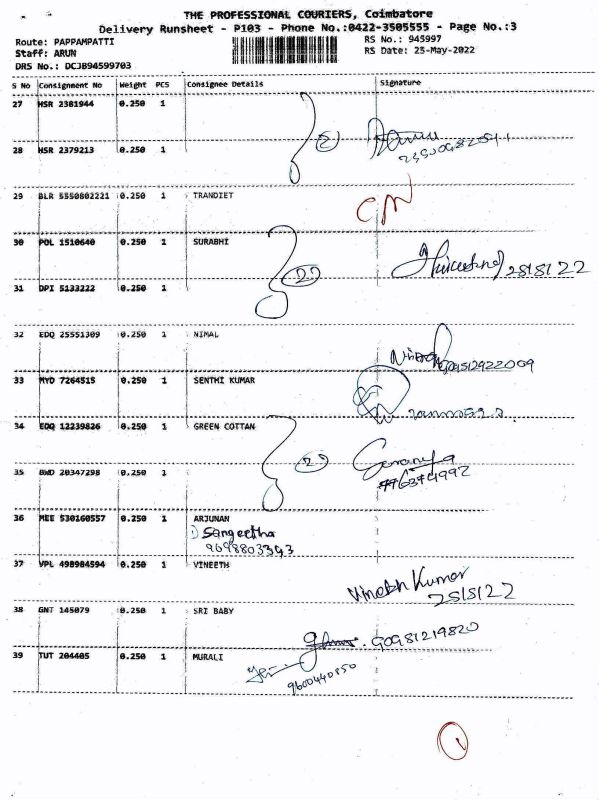 THE PROFESSIONAL COURIERS, Coimbatore
Delivery Runsheet - P103 - Phone No.:0422-3505555 - Page No.:3
Route: PAPPAMPATTI
Staff: ARUN
DRS No.: DCJB94599703
RS No.: 945997
RS Date: 25-May-2022
S No Consignment No Weight PCS Consignee Details Signature
27 HSR 2381944 0.250 1
28 HSR 2379213 0.250 1
2
29 BLR 5550802221 0.250 1 TRANDIET
30 POL 1510640 0.250 1 SURABHI
25/5/22
31 DPI 5133222 0.250 1
2
32 EDQ 25551309 0.250 1 NIMAL
33 MYD 7264515 0.250 1 SENTHI KUMAR
34 EDQ 12239826 0.250 1 GREEN COTTAN
2
Saranya
35 BWD 20347298 0.250 1
36 MEE 530160557 0.250 1 ARJUNAN
Sangeetha
9698803393
37 VPL 498984594 0.250 1 VINEETH
Vinoth Kumar
25/5/22
38 GNT 145079 0.250 1 SRI BABY
90981219820
39 TUT 204405 0.250 1 MURALI
9600440850
1